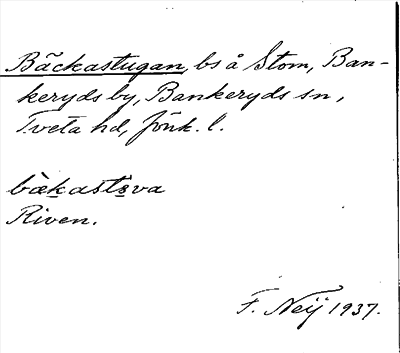 Bäckastugan, bs å Stom, Ban-
keryds by, Bankeryds sn,
Tveta hd, Jönk. l.
bækastova
Riven.
F. Neij 1937.